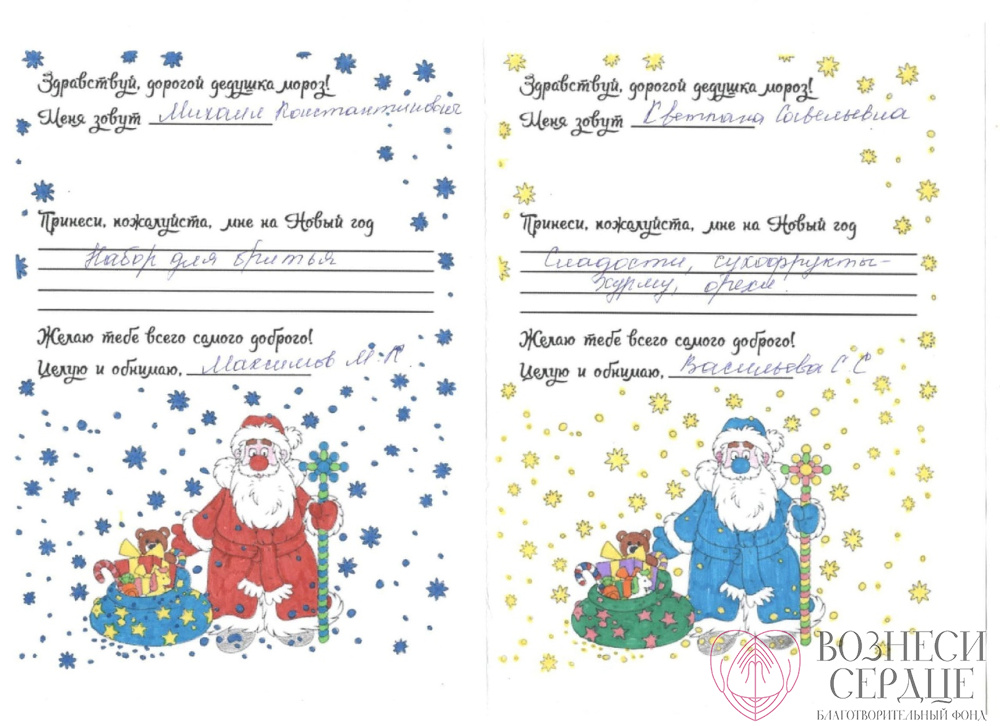 Здравствуй, дорогой дедушка мороз!
Меня зовут Михаил Константинович
Принеси, пожалуйста, мне на Новый год
Набор для бритья
Желаю тебе всего самого доброго!
Целую и обнимаю, Максимов М.К.
Здравствуй, дорогой дедушка мороз!
Меня зовут Светлана Савельевна
Принеси, пожалуйста, мне на Новый год
Сладости, сухофрукты-
хурму, орехи.
Желаю тебе всего самого доброго!
Целую и обнимаю, Васильева С.С
ВОЗНЕСИ
СЕРДЦЕ
БЛАГОТВОРИТЕЛЬНЫЙ ФОНД